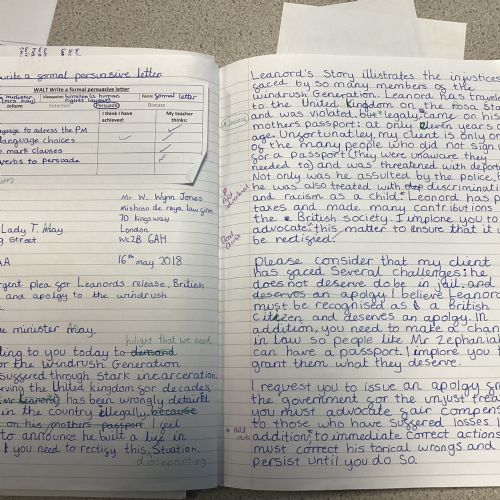 write a formal persuasive letter
WALT Write a formal persuasive letter
Viewpoint
Form: formal letter
human rights lawyer
Inform
Entertain
Persuade
Discuss
I think I have achieved:
My teacher thinks:
language to address the PM
language choices
to mark clauses
verbs to persuade
Mr W. Wynn Jones
70 kingsway
London
WC2B 6AH
16th may 2018
Lady T. May
g Street
AA
gent plea for Leanords release, British
and apology to the windrush
e minister may,
ting to you today to demand
or the windrush Generation
suffered through Stark incarceration.
erving the United kingdom for decades,
has been wrongly detaint
in the country illegally, because
on his mothers passport I feel
to announce he built a life in
you need to rectify this, Stuation.
dissapointing
Leanord's Story illustrates the injustices
faced by so many members of the
windrush Generation. Leanord has traveled
to the United Kingdom on the
and was violated, but legaly, came on his
mothers passport: at only eleven years
age. Unfortunatley, my client is only on
of the many people who did not sign u
for a passport (they were unaware they
needed to) and was threatened with deport
Not only was he assulted by the police, b
he was also treated with discriminati
and racism as a child. Leonord has p
taxes and made many contributions
the British society. I implore you to
advocate this matter to ensure that it w
be rectified.
Please consider that my client
has faced Several challenges: he
does not deserve do be in jail and
deserves an apolgy. I believe Leanord
must be recognised as a British
Citizen and deserves an apolgy. In
addition, you need to make a chan
in law so people like Mr Zephaniah
can have a passport. I implore you t
grant them what they deserve.
I request you to issue an apolgy fr
the government for the unjust treat
you must advocate fair compens
to those who have suffered losses. I
addition, to immediate correct actions
must correct his torical wrongs and
persist until you do so.